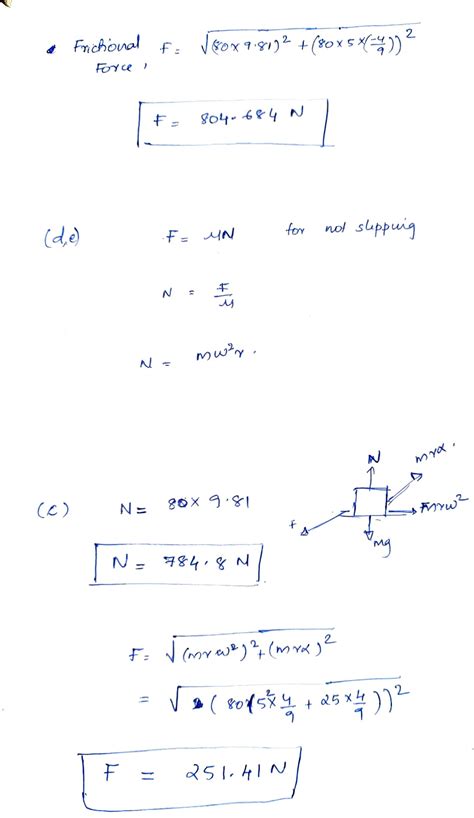 • Frictional F = √(80×9.81)² + (80×5×(-4/9))²
Force,
F = 804.684 N
(d,e) F = μN for not slipping
N = F/μ
N = mw²r.
(c) N = 80×9.81
N = 784.8 N
N
mrα.
mrw²
f
mg
F = √(mrw²)² + (mrα)²
= √(80(5²×4/9 + 25×4/9))²
F = 251.41 N